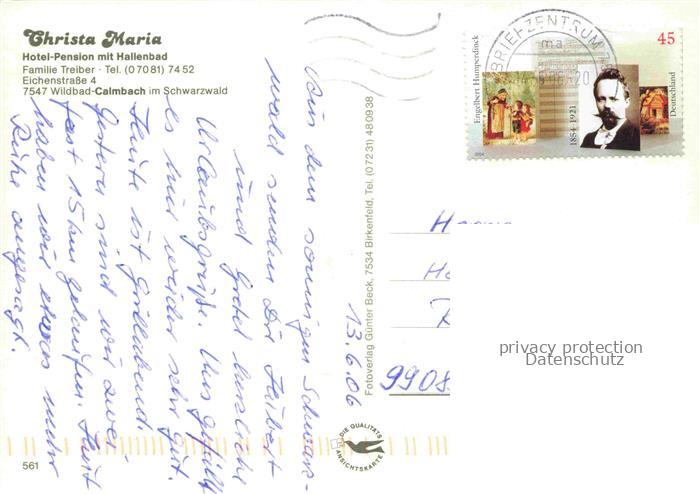 Christa Maria
Hotel-Pension mit Hallenbad
Familie Treiber · Tel. (0 70 81) 74 52
Eichenstraße 4
7547 Wildbad-Calmbach im Schwarzwald
Aus dem sonnigen Schwarz-
wald senden Dir Heibert
und Gretel herzliche
Urlaubsgrüße. Uns gefällt
es hier wieder sehr gut.
Heute ist Grillabend.
Gestern sind wir zwei
fast 15 km gelaufen. Heut
haben wir etwas mehr
Ruhe angesagt.
13.6.06
Fotoverlag Günter Beck, 7534 Birkenfeld, Tel. (07231) 480938
DIE QUALITÄTS
ANSICHTSKARTE
561
BRIEFZENTRUM
ma
20
Engelbert Humperdinck
1854-1921
45
Deutschland
9908
privacy protection
Datenschutz